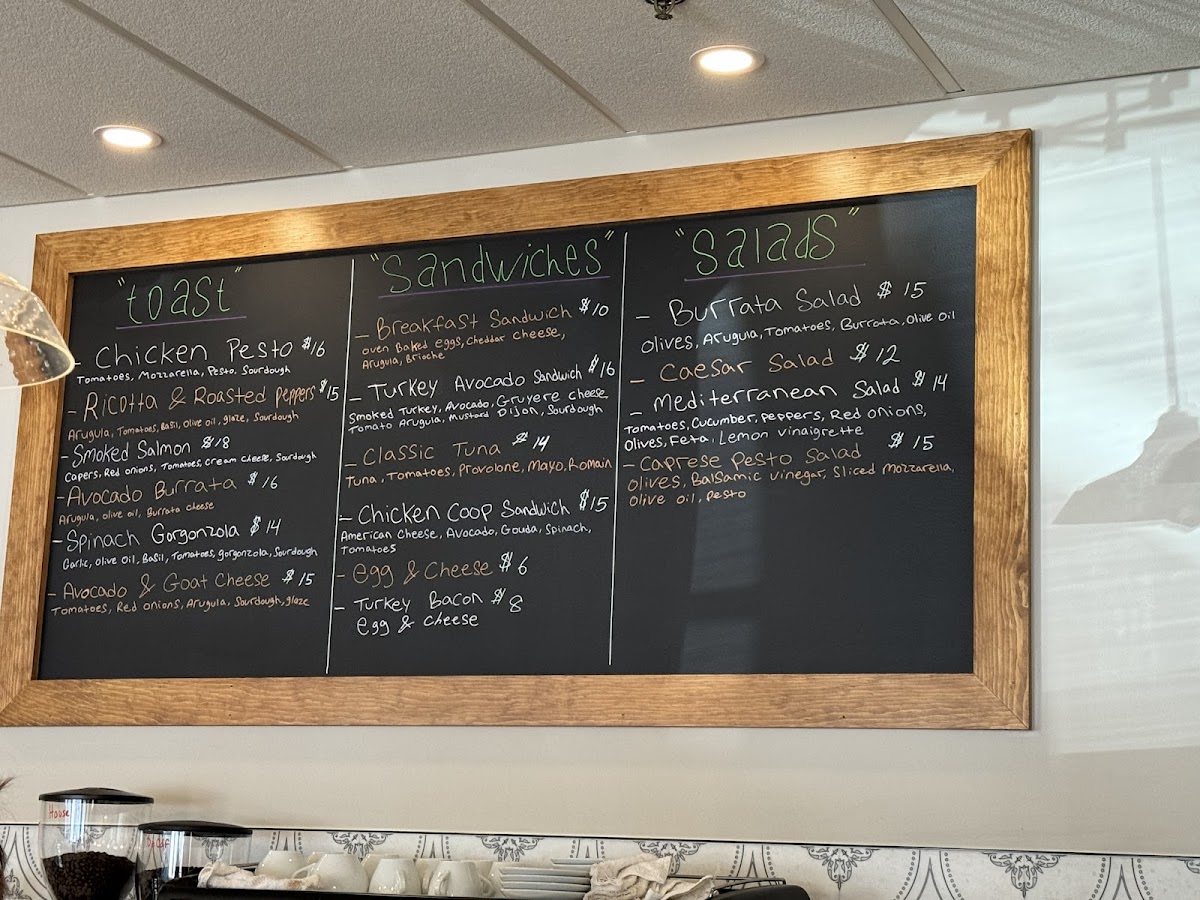 "toast"
- Chicken Pesto $16
Tomatoes, Mozzarella, Pesto, Sourdough
- Ricotta & Roasted Peppers $15
Arugula, Tomatoes, Basil, Olive oil, glaze, Sourdough
- Smoked Salmon $18
Capers, Red onions, Tomatoes, cream cheese, Sourdough
- Avocado Burrata $16
Arugula, olive oil, Burrata cheese
- Spinach Gorgonzola $14
Garlic, Olive Oil, Basil, Tomatoes, gorgonzola, Sourdough
- Avocado & Goat Cheese $15
Tomatoes, Red onions, Arugula, Sourdough, glaze
"Sandwiches"
- Breakfast Sandwich $10
oven Baked eggs, cheddar cheese,
Arugula, Brioche
- Turkey Avocado Sandwich $16
Smoked Turkey, Avocado, Gruyere cheese
Tomato Arugula, Mustard Dijon, Sourdough
- Classic Tuna $14
Tuna, Tomatoes, Provolone, Mayo, Romain
- Chicken Coop Sandwich $15
American cheese, Avocado, Gouda, Spinach,
Tomatoes
- egg & Cheese $6
- Turkey Bacon $8
egg & cheese
"Salads"
- Burrata Salad $15
Olives, Arugula, Tomatoes, Burrata, Olive oil
- Caesar Salad $12
- Mediterranean Salad $14
Tomatoes, Cucumber, peppers, Red onions,
Olives, Feta, Lemon vinaigrette
- Caprese Pesto Salad $15
Olives, Balsamic vinegar, Sliced Mozzarella,
Olive oil, Pesto
House
Decaf